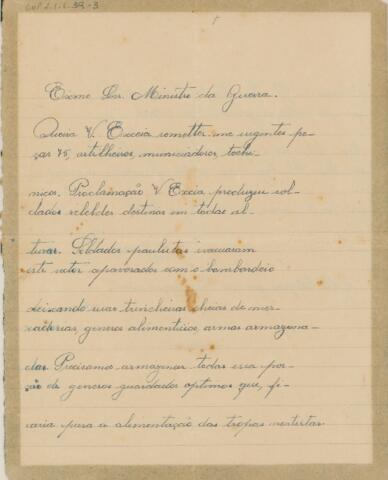 Exmo Snr. Ministro da Guerra.
Queira V. Exceia remetter-me urgentes pe-
ças 75, artilheiros, municiadores, tech-
nicos. Proclamação V Excia produziu sol-
dados rebeldes destinos em todas al-
turas. Soldados paulistas evacuaram
este setor apavorados com o bombardeio
deixando suas trincheiras cheias de mer-
cadorias, generos alimenticios, armas armazena-
das. Precisamos armazenar todas essa por-
ção de generos guardados optimos que, fi-
caria para a alimentação das tropas